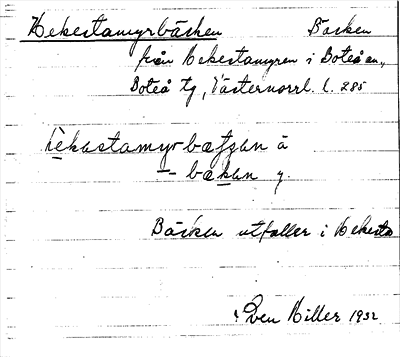 Hekestamyrbäcken Bäcken
från Hekestamyren i Boteå sn,
Boteå tg, Västernorrl. l. 285
hekastamyrbætsan ä
–"– bækan y.
Bäcken utfaller i Hekesta
Sven Hiller 1932